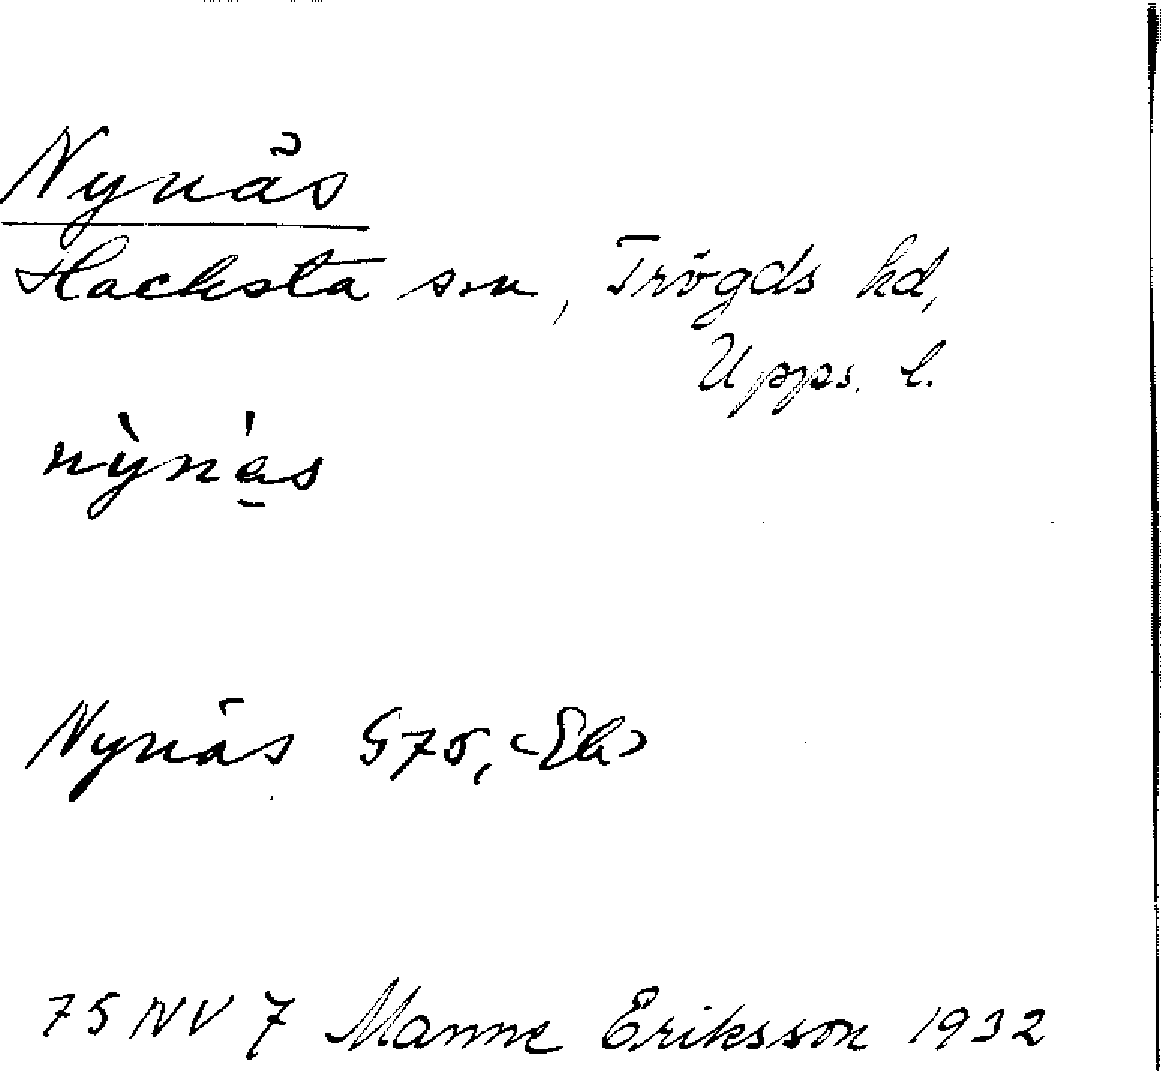 Nynäs
Hacksta sn, Trögds hd,
Upps. l.
nỳnás
Nynäs G75, (Ek)
75 NV 7 Manne Eriksson 1932